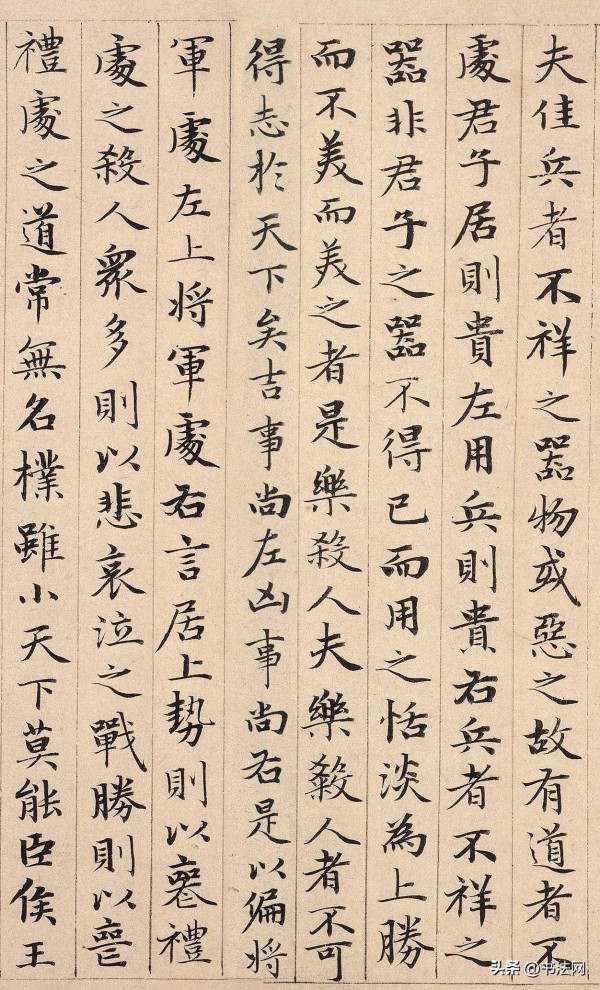 夫佳兵者不祥之器物或惡之故有道者不
處君子居則貴左用兵則貴右兵者不祥之
器非君子之器不得已而用之恬淡為上勝
而不美而美之者是樂殺人夫樂殺人者不可
得志於天下矣吉事尚左凶事尚右是以偏將
軍處左上將軍處右言居上勢則以喪禮
處之殺人眾多則以悲哀泣之戰勝則以喪
禮處之道常無名樸雖小天下莫能臣侯王
头条 @书法网